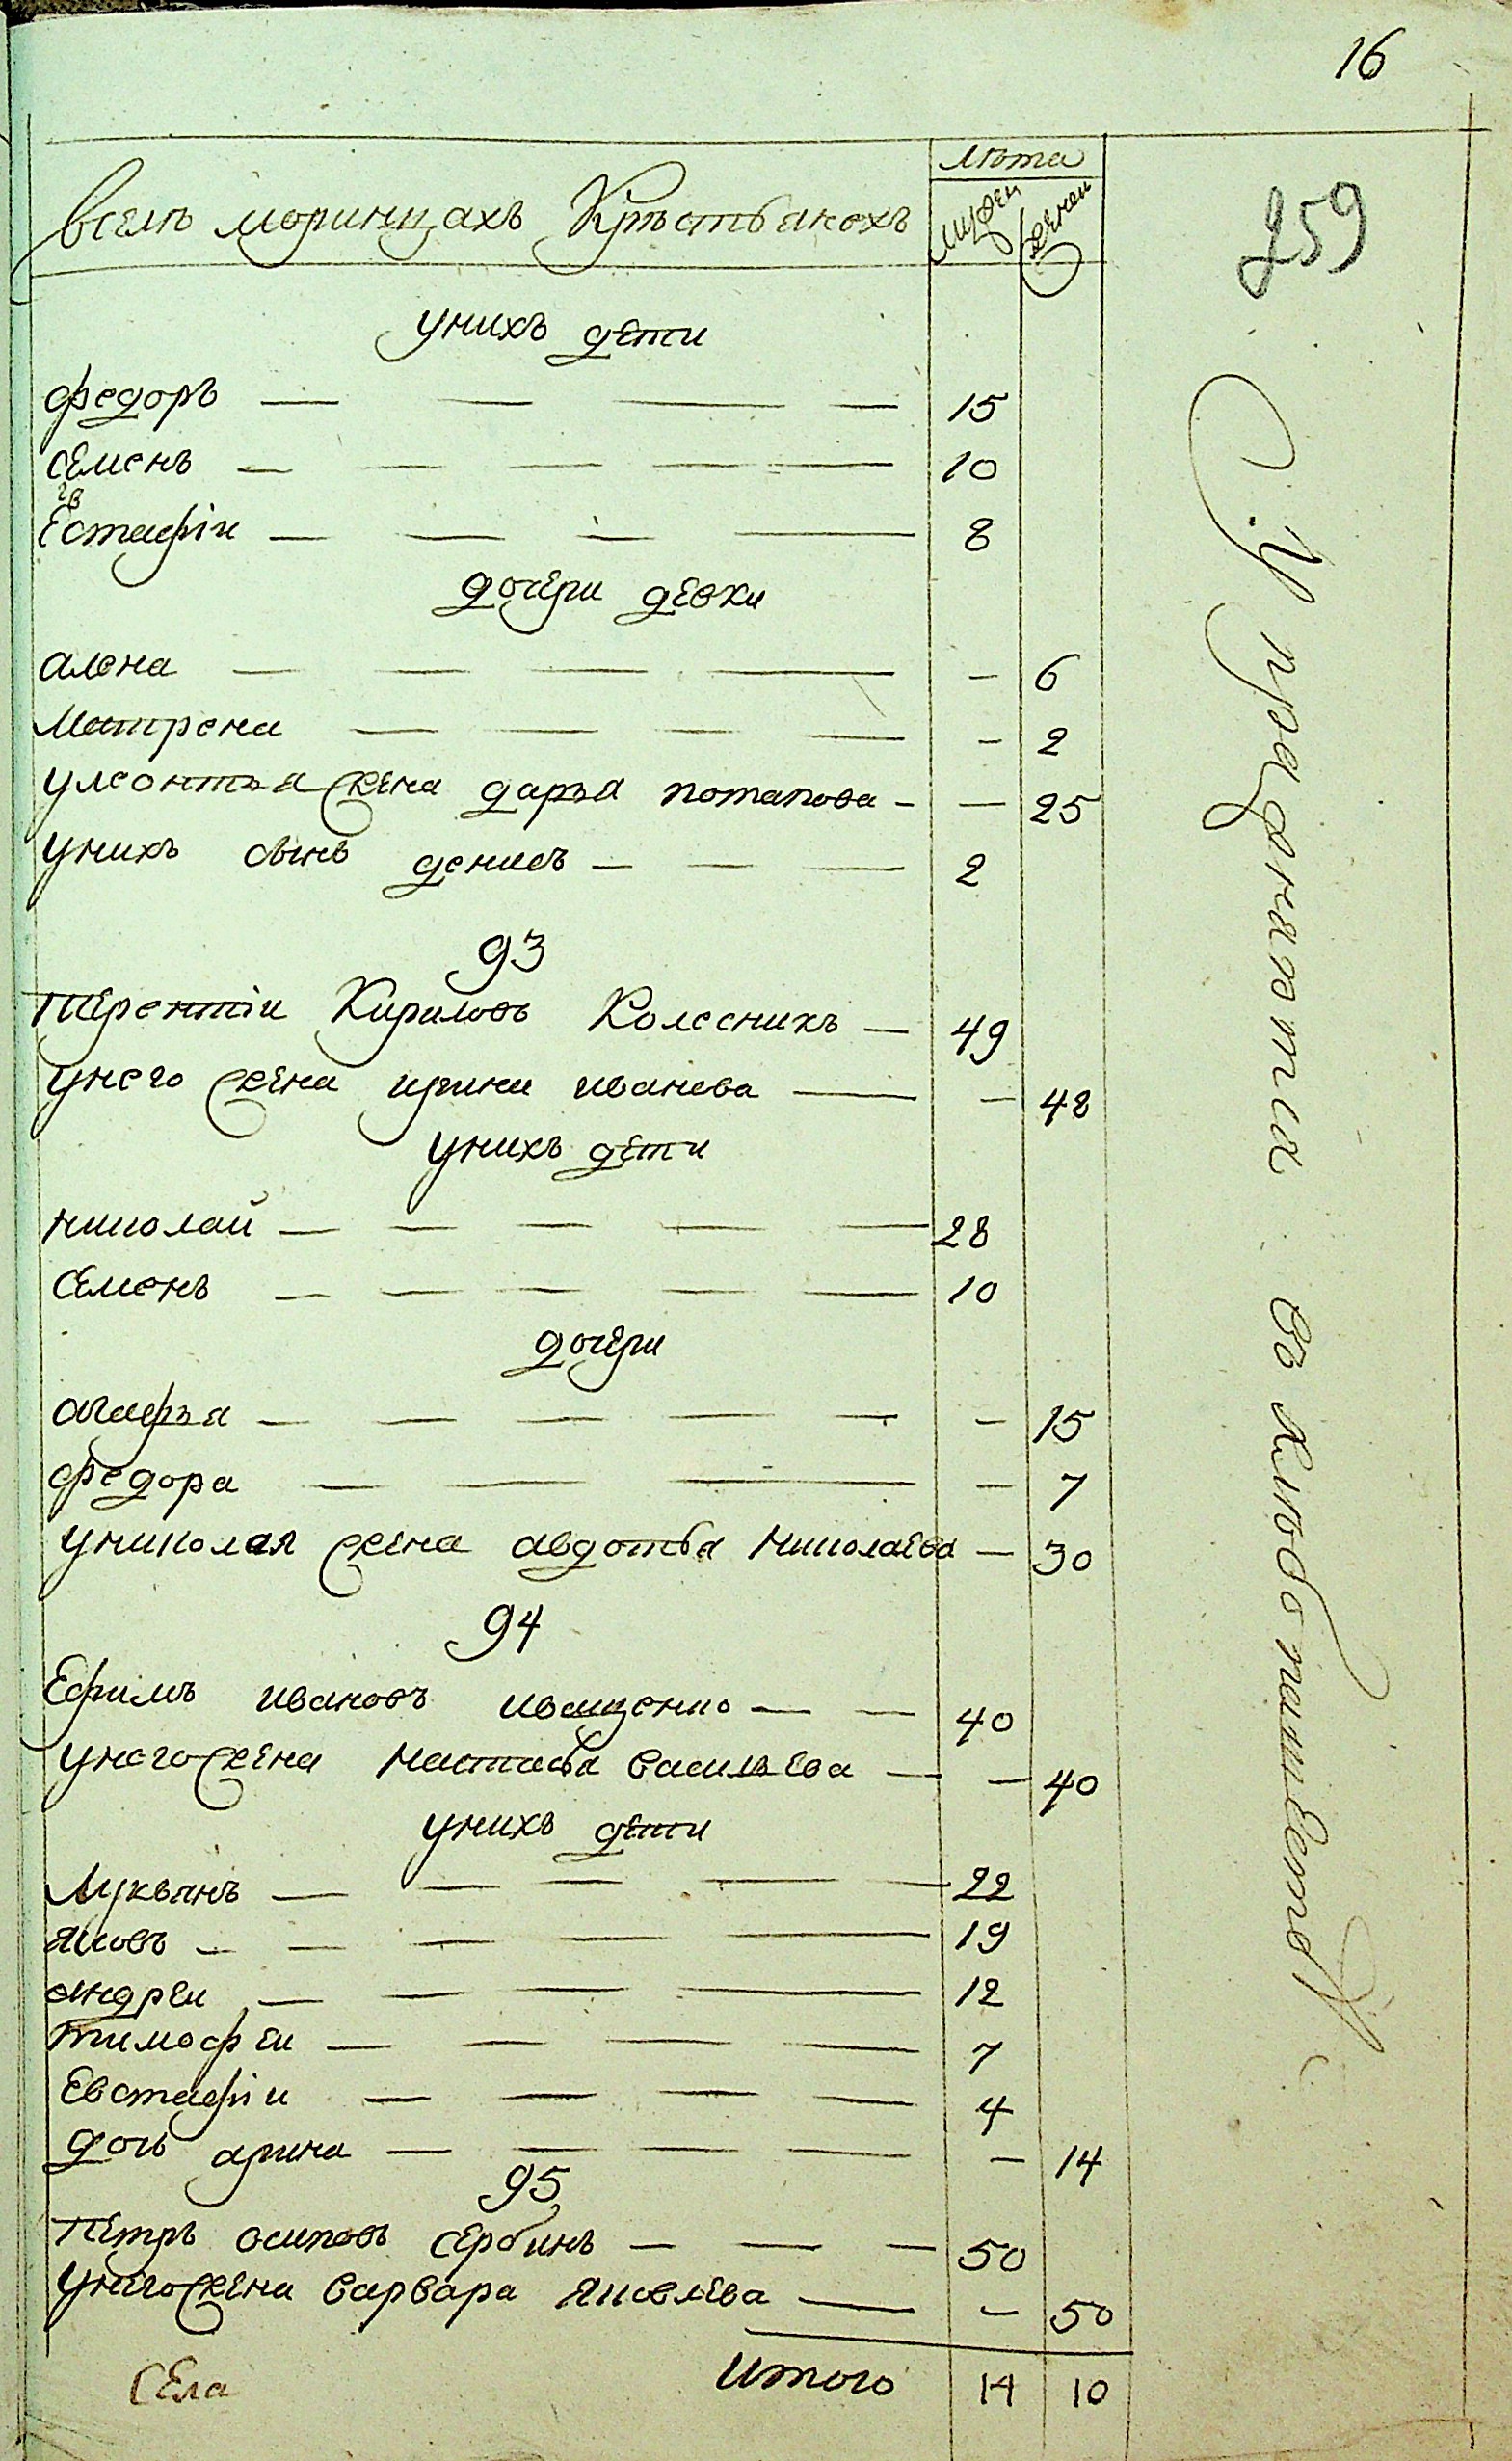 16
259
лѣта
всемъ моринцахъ Крѣстьянехъ
мужей
женск
унихъ дети
федоръ — — — — 15
семенъ — — — — — 10
ѵв
Естафіи — — — — 8
дочери девки
алена — — — — — 6
Матрена — — — — — 2
улеонтъя жена даръя потапова - — 25
унихъ сынъ денисъ — — — 2
93
терентіи Кириловъ Колесникъ — 49
унего жена ирина иванова — — 48
унихъ дети
николай — — — — — 28
семенъ — — — — — 10
дочери
агафъя — — — — — — 15
федора — — — — 7
униколая жена авдотья николаева — 30
94
Ефимъ ивановъ иващенко — — 40
унегожена настасья васильева — — 40
унихъ дети
лукьянъ — — — — — 22
яковъ — — — — — 19
андреи — — — — — 12
тимофеи — — — — 7
Евстафіи — — — — 4
дочь арина — — — — — 14
95
петръ осиповъ сербинъ — — — 50
унегожена варвара яковлева — — 50
итого 14 10
села
упражняются въ хлебопашестве